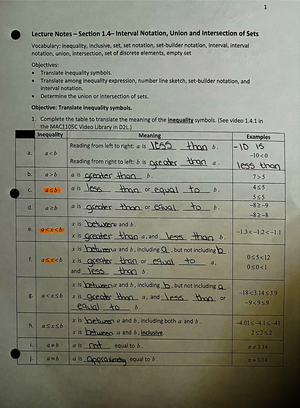 1
Lecture Notes – Section 1.4– Interval Notation, Union and Intersection of Sets
Vocabulary: inequality, inclusive, set, set notation, set-builder notation, interval, interval
notation, union, intersection, set of discrete elements, empty set
Objectives:
• Translate inequality symbols.
• Translate among inequality expression, number line sketch, set-builder notation, and
interval notation.
• Determine the union or intersection of sets.
Objective: Translate inequality symbols.
1. Complete the table to translate the meaning of the inequality symbols. (See video 1.4.1 in
the MAC1105C Video Library in D2L.)
Inequality Meaning Examples
a. a<b Reading from left to right: a is less than b. -10 is
-10<0
Reading from right to left: b is greater than a. less than
b. a>b a is greater than b. 7>5
c. a≤b a is less than or equal to b. 4≤5
5≤5
d. a≥b a is greater than or equal to b. -8≥-9
-8≥-8
e. a<x<b x is between a and b.
x is greater than a, and less than b. -1.3<-1.2<-1.1
f. a≤x<b x is between a and b, including a, but not including b.
x is greater than or equal to a, 0≤5<12
and less than b. 0≤0<1
g. a<x≤b x is between a and b, including b, but not including a.
x is greater than a, and less than or -18<3.14≤3.9
equal to b. -9<9≤9
h. a≤x≤b x is between a and b, including both a and b. -4.01≤-4.1≤-41
x is between a and b, inclusive. 2≤2≤2
i. a≠b a is not equal to b. π≠3.14
j. a≈b a is approximately equal to b. π≈3.14